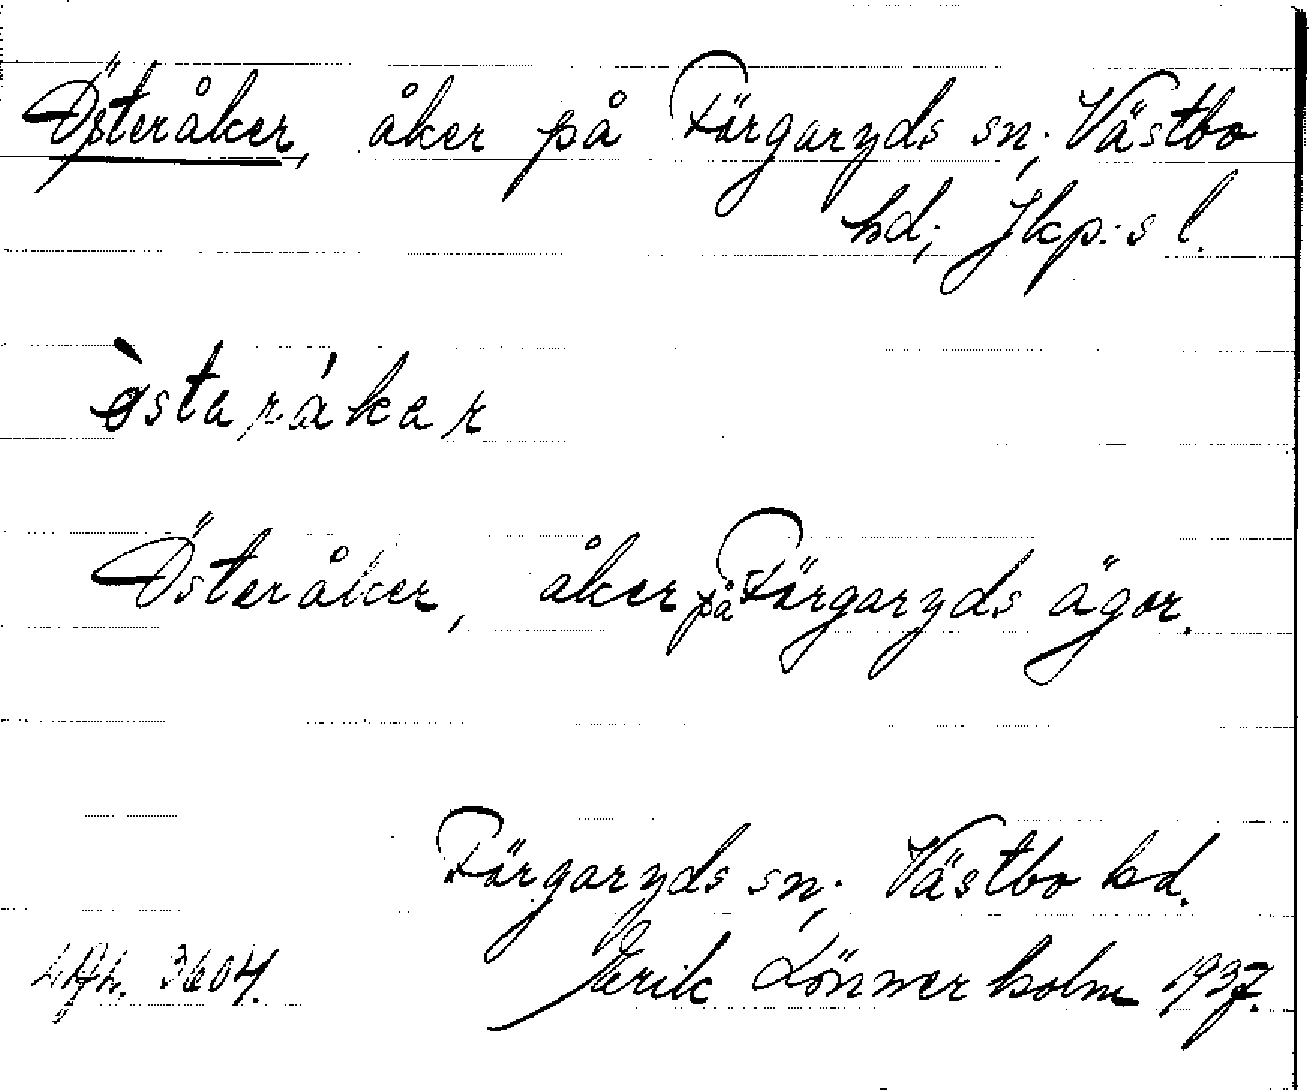 Österåker, åker på Färgaryds sn; Västbo
hd; Jkp:s l.
østarákar
Österåker, åker på Färgaryds ägor.
Färgaryds sn; Västbo hd.
3604. Erik Lönnerholm 1937.